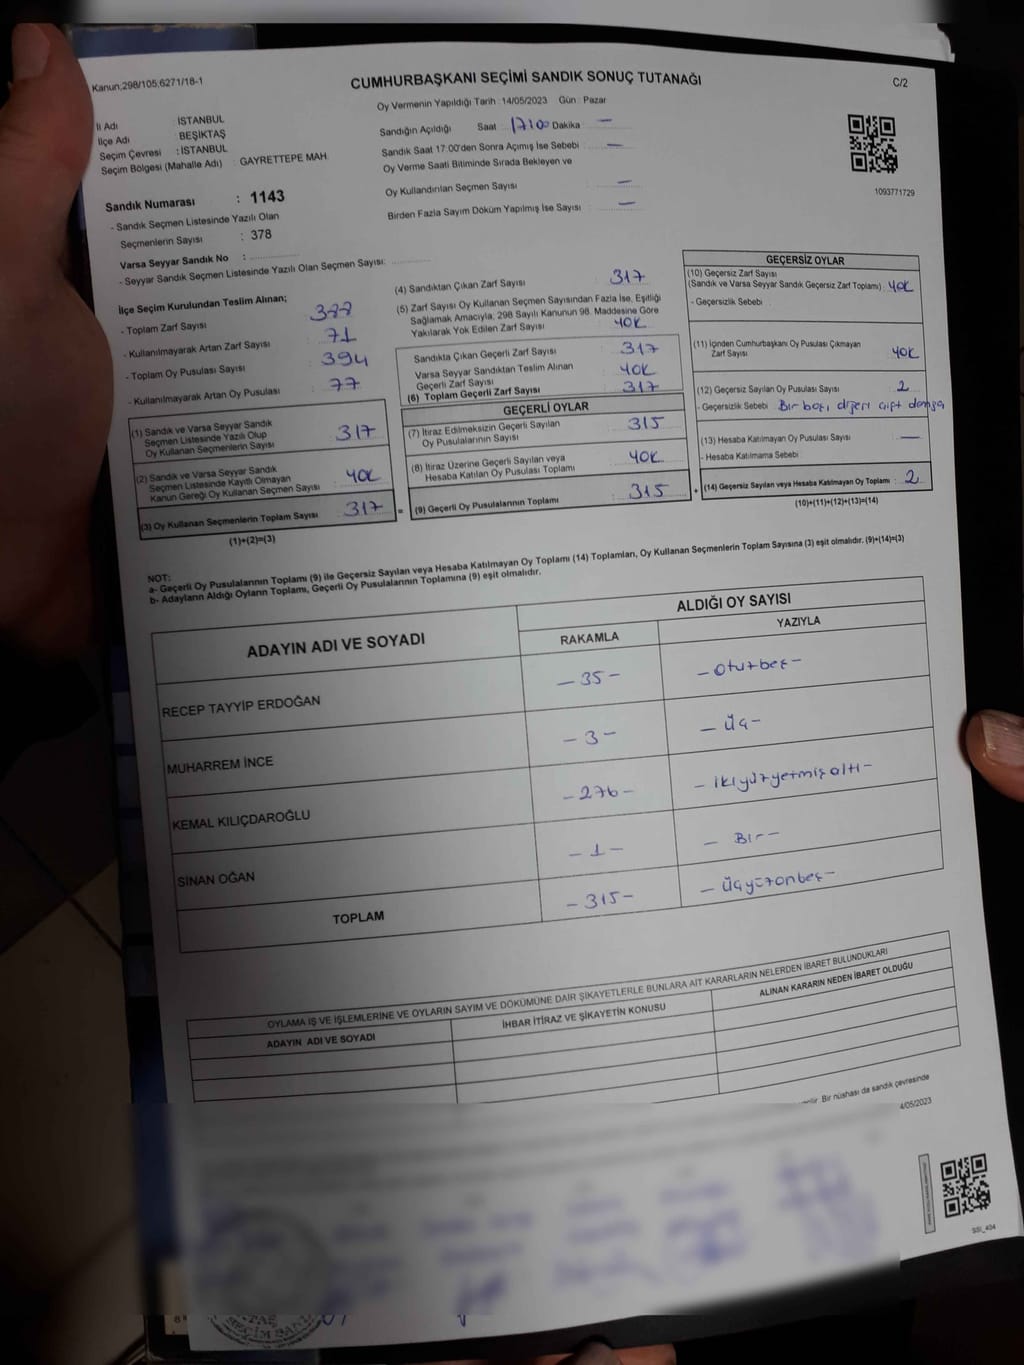 Kanun,298/105,6271/18-1
CUMHURBAŞKANI SEÇİMİ SANDIK SONUÇ TUTANAĞI
C/2
Oy Vermenin Yapıldığı Tarih : 14/05/2023 Gün : Pazar
İl Adı : İSTANBUL
İlçe Adı : BEŞİKTAŞ
Seçim Çevresi : İSTANBUL
Seçim Bölgesi (Mahalle Adı) : GAYRETTEPE MAH.
Sandığın Açıldığı Saat 17:00 Dakika —
Sandık Saat 17:00'den Sonra Açımış İse Sebebi : —
Oy Verme Saati Bitiminde Sırada Bekleyen ve
Oy Kullandırılan Seçmen Sayısı : —
Birden Fazla Sayım Döküm Yapılmış İse Sayısı : —
1093771729
Sandık Numarası : 1143
- Sandık Seçmen Listesinde Yazılı Olan
Seçmenlerin Sayısı : 378
Varsa Seyyar Sandık No :
- Seyyar Sandık Seçmen Listesinde Yazılı Olan Seçmen Sayısı:
İlçe Seçim Kurulundan Teslim Alınan;
- Toplam Zarf Sayısı :
- Kullanılmayarak Artan Zarf Sayısı : 71
- Toplam Oy Pusulası Sayısı : 394
- Kullanılmayarak Artan Oy Pusulası : 77
(1) Sandık ve Varsa Seyyar Sandık
Seçmen Listesinde Yazılı Olup
Oy Kullanan Seçmenlerin Sayısı : 317
(2) Sandık ve Varsa Seyyar Sandık
Seçmen Listesinde Kayıtlı Olmayan
Kanun Gereği Oy Kullanan Seçmen Sayısı : YOK
(3) Oy Kullanan Seçmenlerin Toplam Sayısı : 317
(1)+(2)=(3)
=
(4) Sandıktan Çıkan Zarf Sayısı : 317
(5) Zarf Sayısı Oy Kullanan Seçmen Sayısından Fazla İse, Eşitliği
Sağlamak Amacıyla, 298 Sayılı Kanunun 98. Maddesine Göre
Yakılarak Yok Edilen Zarf Sayısı : YOK
Sandıkta Çıkan Geçerli Zarf Sayısı : 317
Varsa Seyyar Sandıktan Teslim Alınan
Geçerli Zarf Sayısı : YOK
(6) Toplam Geçerli Zarf Sayısı : 317
GEÇERLİ OYLAR
(7) İtiraz Edilmeksizin Geçerli Sayılan
Oy Pusulalarının Sayısı : 315
(8) İtiraz Üzerine Geçerli Sayılan veya
Hesaba Katılan Oy Pusulası Toplamı : YOK
(9) Geçerli Oy Pusulalarının Toplamı : 315
+
GEÇERSİZ OYLAR
(10) Geçersiz Zarf Sayısı
(Sandık ve Varsa Seyyar Sandık Geçersiz Zarf Toplamı) : YOK
- Geçersizlik Sebebi :
(11) İçinden Cumhurbaşkanı Oy Pusulası Çıkmayan
Zarf Sayısı : YOK
(12) Geçersiz Sayılan Oy Pusulası Sayısı : 2
- Geçersizlik Sebebi : Bir boş, diğeri çift damga
(13) Hesaba Katılmayan Oy Pusulası Sayısı : —
- Hesaba Katılmama Sebebi :
(14) Geçersiz Sayılan veya Hesaba Katılmayan Oy Toplamı : 2
(10)+(11)+(12)+(13)=(14)
NOT:
a- Geçerli Oy Pusulalarının Toplamı (9) ile Geçersiz Sayılan veya Hesaba Katılmayan Oy Toplamı (14) Toplamları, Oy Kullanan Seçmenlerin Toplam Sayısına (3) eşit olmalıdır. (9)+(14)=(3)
b- Adayların Aldığı Oyların Toplamı, Geçerli Oy Pusulalarının Toplamına (9) eşit olmalıdır.
ADAYIN ADI VE SOYADI
ALDIĞI OY SAYISI
RAKAMLA
YAZIYLA
RECEP TAYYİP ERDOĞAN – 35 – – Otuzbeş –
MUHARREM İNCE – 3 – – Üç –
KEMAL KILIÇDAROĞLU – 276 – – ikiyüzyetmişaltı –
SİNAN OĞAN – 1 – – Bir –
TOPLAM – 315 – – Üçyüzonbeş –
OYLAMA İŞ VE İŞLEMLERİNE VE OYLARIN SAYIM VE DÖKÜMÜNE DAİR ŞİKAYETLERLE BUNLARA AİT KARARLARIN NELERDEN İBARET BULUNDUKLARI
ADAYIN ADI VE SOYADI
İHBAR İTİRAZ VE ŞİKAYETİN KONUSU
ALINAN KARARIN NEDEN İBARET OLDUĞU
Bir nüshası da sandık çevresinde
4/05/2023
SSI_404